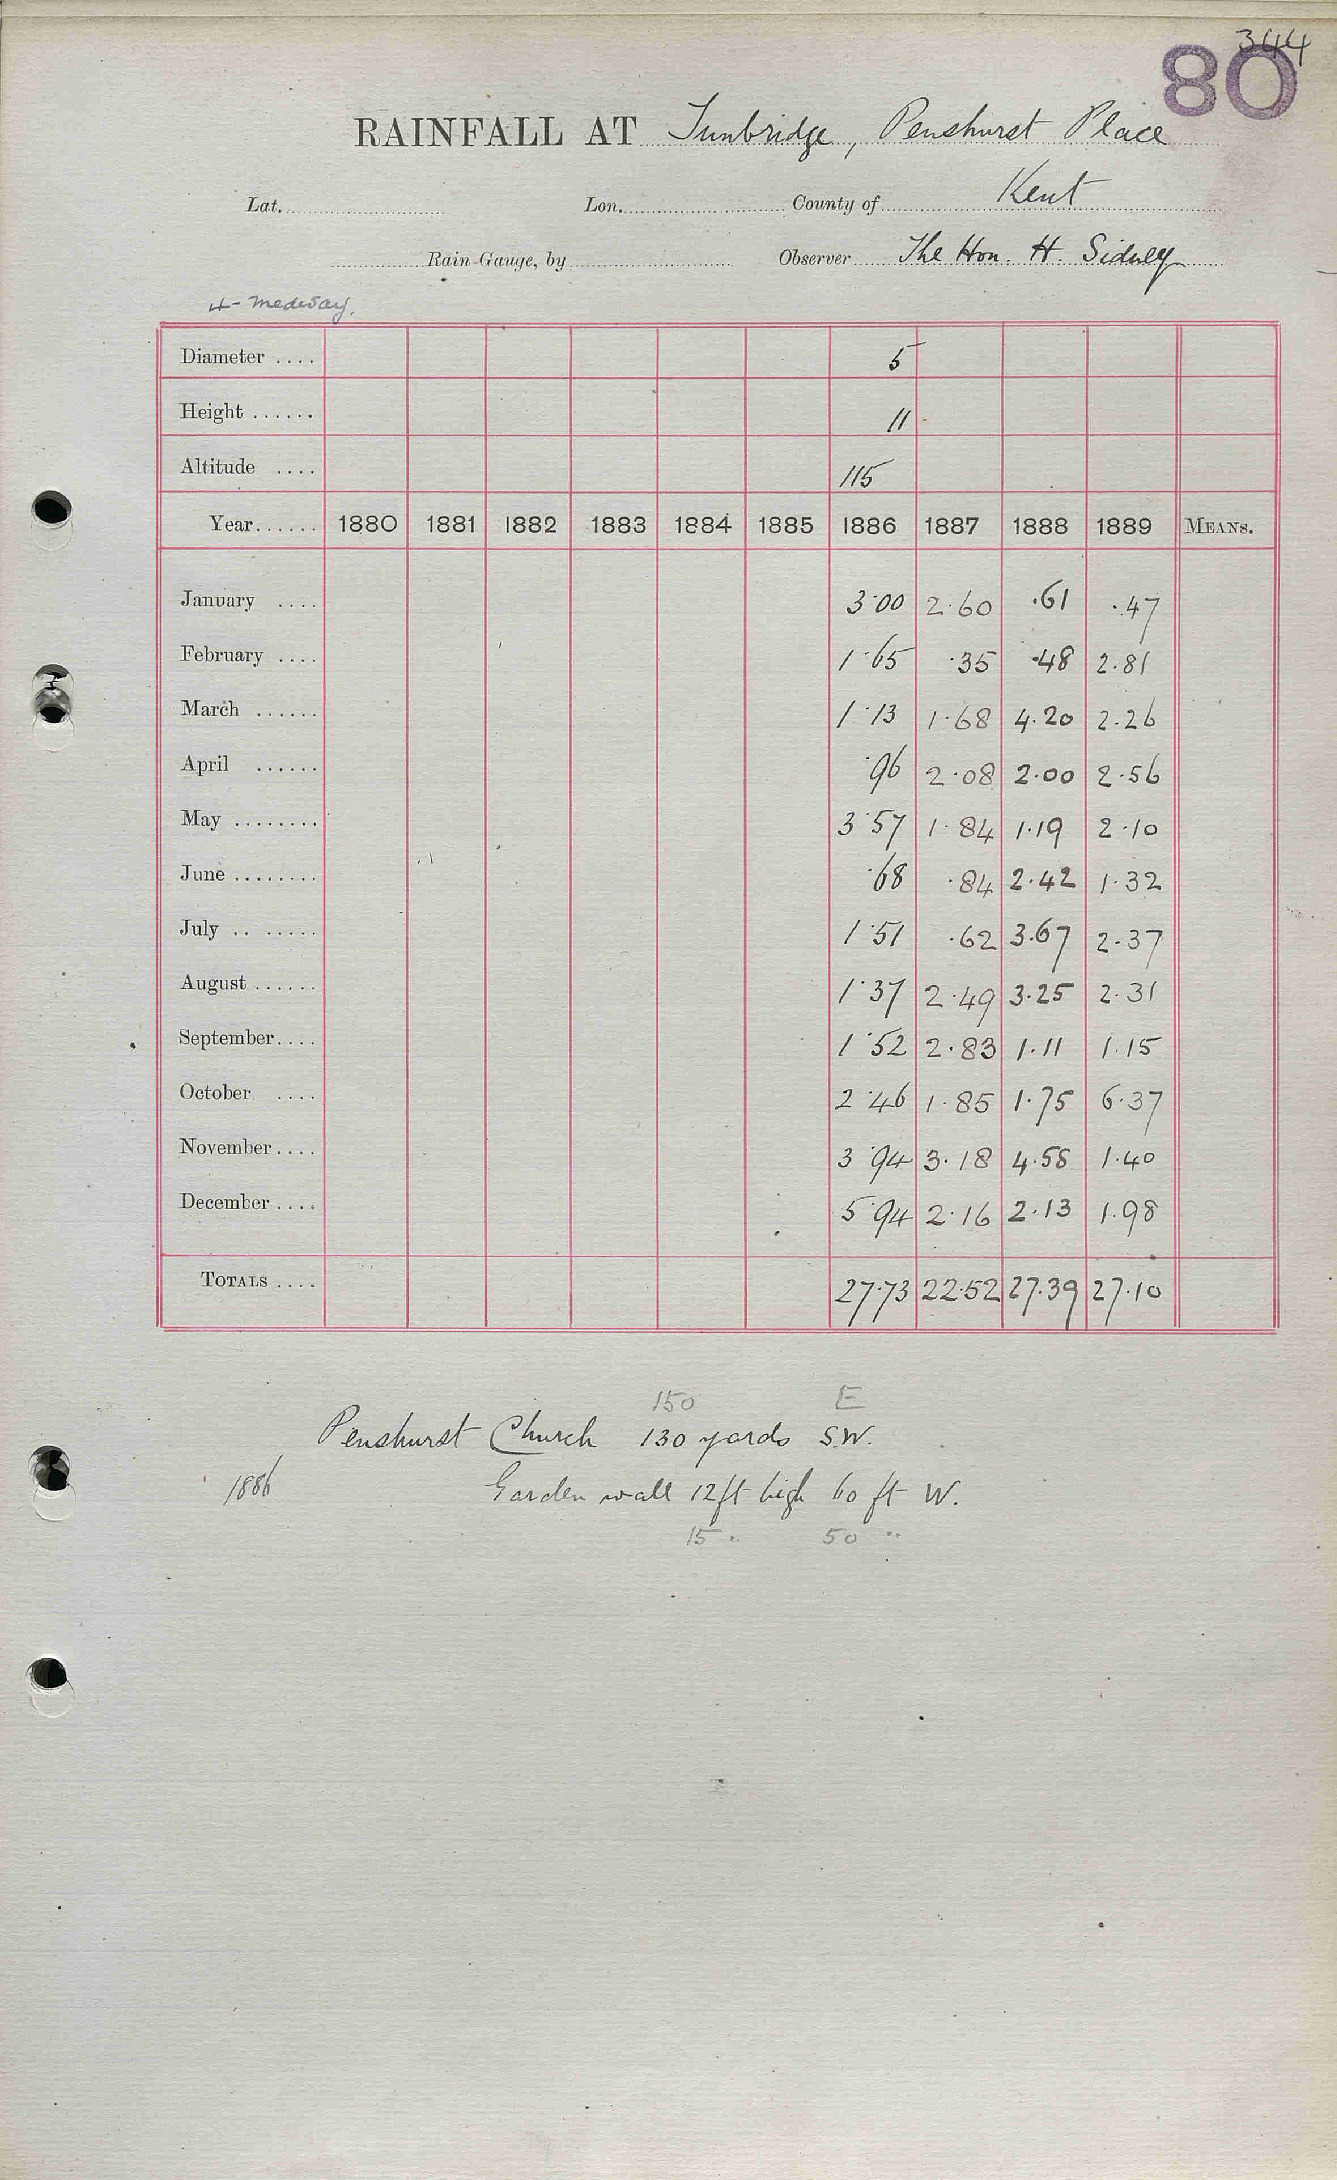 344
80
RAINFALL AT Tunbridge, Penshurst Place
Lat. Lon. County of Kent
Rain-Gauge, by Observer The Hon. H. Sidney
4- Medway.
Diameter .... 5
Height ...... 11
Altitude .... 115
Year...... 1880 1881 1882 1883 1884 1885 1886 1887 1888 1889 MEANS.
January .... 3.00 2.60 .61 .47
February .... 1.65 .35 .48 2.81
March ...... 1.13 1.68 4.20 2.26
April ...... .96 2.08 2.00 2.56
May ........ 3.57 1.84 1.19 2.10
June ........ .68 .84 2.42 1.32
July .. ..... 1.51 .62 3.67 2.37
August ...... 1.37 2.49 3.25 2.31
September.... 1.52 2.83 1.11 1.15
October .... 2.46 1.85 1.75 6.37
November.... 3.94 3.18 4.58 1.40
December .... 5.94 2.16 2.13 1.98
TOTALS .... 27.73 22.52 27.39 27.10
150 E
Penshurst Church 130 yards S.W.
1886 Garden wall 12ft high 60 ft W.
15 " 50 "